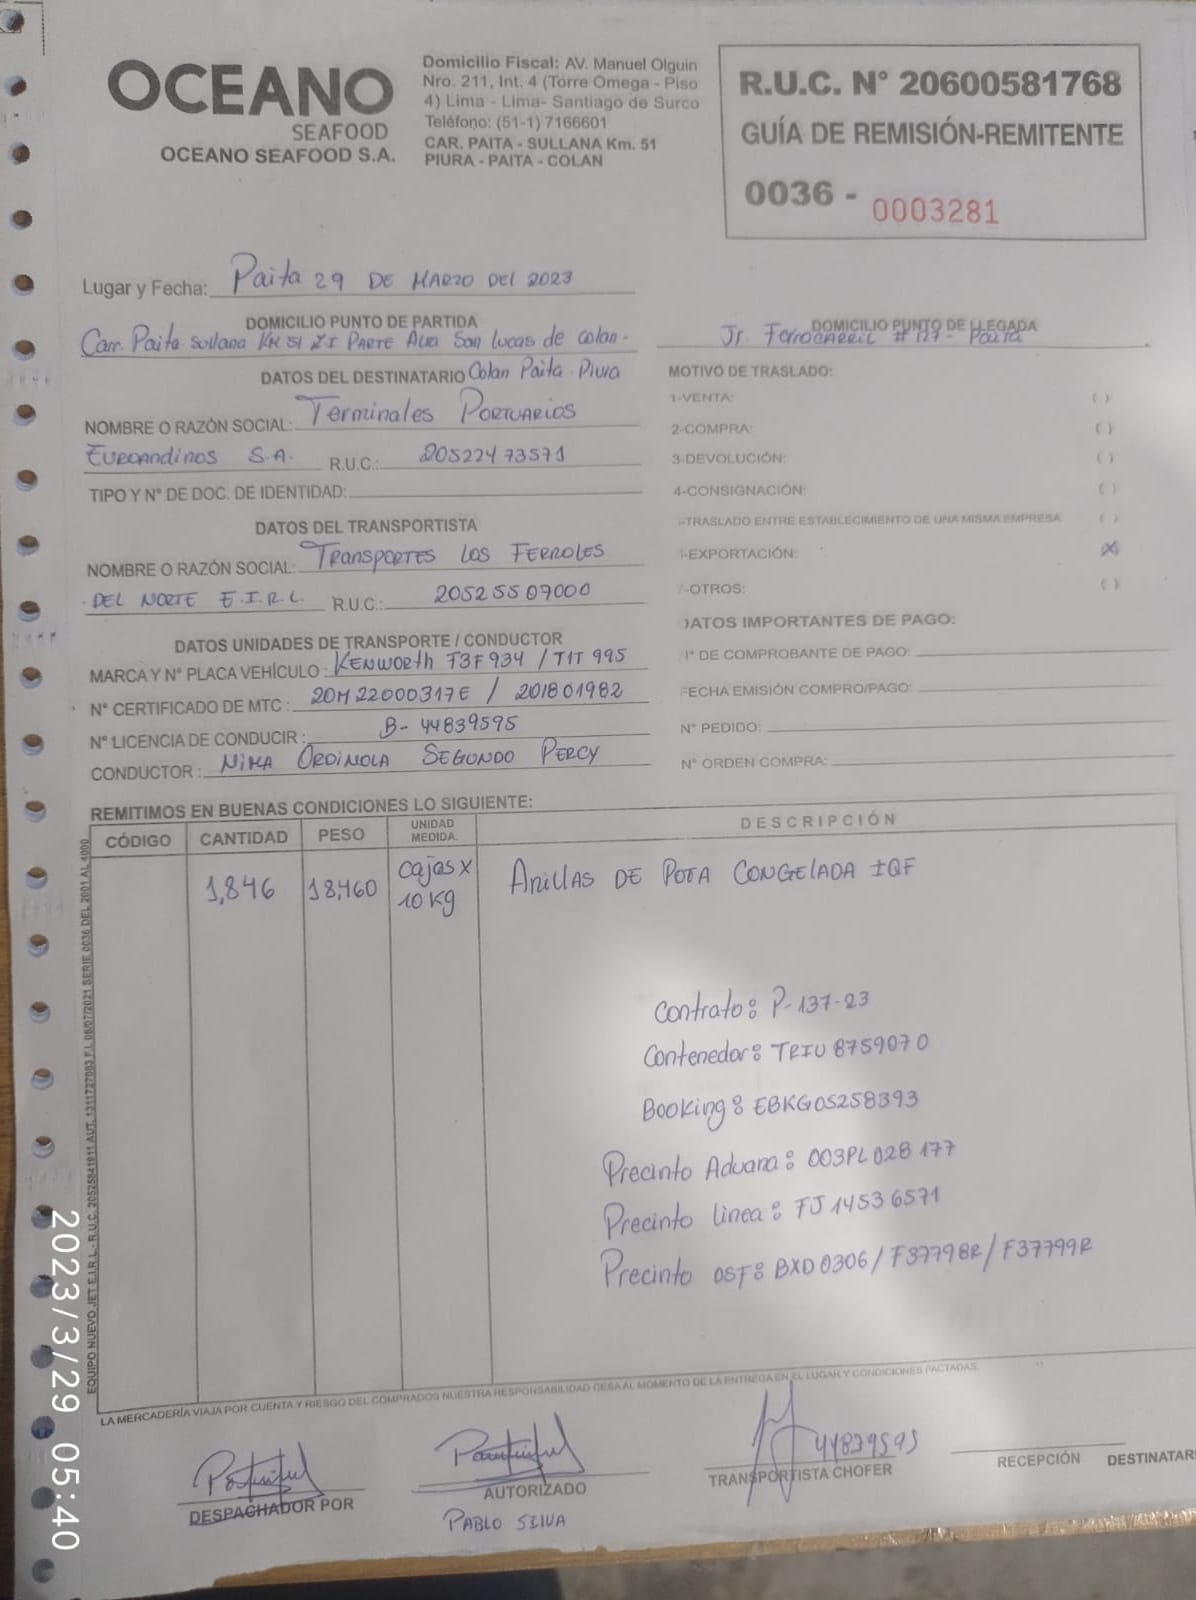 OCEANO
SEAFOOD
OCEANO SEAFOOD S.A.
Domicilio Fiscal: AV. Manuel Olguin
Nro. 211, Int. 4 (Torre Omega - Piso
4) Lima - Lima- Santiago de Surco
Teléfono: (51-1) 7166601
CAR. PAITA - SULLANA Km. 51
PIURA - PAITA - COLAN
R.U.C. N° 20600581768
GUÍA DE REMISIÓN-REMITENTE
0036 - 0003281
Lugar y Fecha: Paita 29 DE MARZO DEL 2023
DOMICILIO PUNTO DE PARTIDA
Carr. Paita Sullana KM 51 Z.I PARTE Alta San Lucas de Colan -
Colan Paita - Piura
DOMICILIO PUNTO DE LLEGADA
Jr. Ferrocarril # 127 - Paita
DATOS DEL DESTINATARIO
NOMBRE O RAZÓN SOCIAL: Terminales PORTUARIOS
Euroandinos S.A. R.U.C.: 20522473571
TIPO Y N° DE DOC. DE IDENTIDAD:
DATOS DEL TRANSPORTISTA
NOMBRE O RAZÓN SOCIAL: TRANSPORTES LOS FERROLES
DEL NORTE E.I.R.L. R.U.C.: 20525507000
DATOS UNIDADES DE TRANSPORTE / CONDUCTOR
MARCA Y N° PLACA VEHÍCULO: KENWORTH T3F934 / T1T 995
N° CERTIFICADO DE MTC: 20M22000317E / 201801982
N° LICENCIA DE CONDUCIR: B- 44839595
CONDUCTOR: NIMA ORDINOLA SEGUNDO PERCY
MOTIVO DE TRASLADO:
1-VENTA: ( )
2-COMPRA: ( )
3-DEVOLUCIÓN: ( )
4-CONSIGNACIÓN: ( )
-TRASLADO ENTRE ESTABLECIMIENTO DE UNA MISMA EMPRESA ( )
-EXPORTACIÓN: (X)
-OTROS: ( )
DATOS IMPORTANTES DE PAGO:
N° DE COMPROBANTE DE PAGO:
FECHA EMISIÓN COMPRO/PAGO:
N° PEDIDO:
N° ORDEN COMPRA:
REMITIMOS EN BUENAS CONDICIONES LO SIGUIENTE:
CÓDIGO CANTIDAD PESO UNIDAD MEDIDA. DESCRIPCIÓN
1,846 18,460 Cajas x 10 Kg ANILLAS DE POTA CONGELADA IQF
Contrato: P-137-23
Contenedor: TRIU 8759070
Booking: EBKG05258393
Precinto Aduana: 003PL028177
Precinto linea: FJ 14536571
Precinto OSF: BXD0306/F37798R/F37799R
EQUIPO NUEVO JET E.I.R.L - R.U.C. 20525841911 AUT. 1311727083 F.I. 08/07/2021 SERIE 0036 DEL 2001 AL 4000
LA MERCADERÍA VIAJA POR CUENTA Y RIESGO DEL COMPRADOS NUESTRA RESPONSABILIDAD CESA AL MOMENTO DE LA ENTREGA EN EL LUGAR Y CONDICIONES PACTADAS.
44839595
DESPACHADOR POR
AUTORIZADO
PABLO SILVA
TRANSPORTISTA CHOFER
RECEPCIÓN DESTINATAR
2023/3/29 05:40